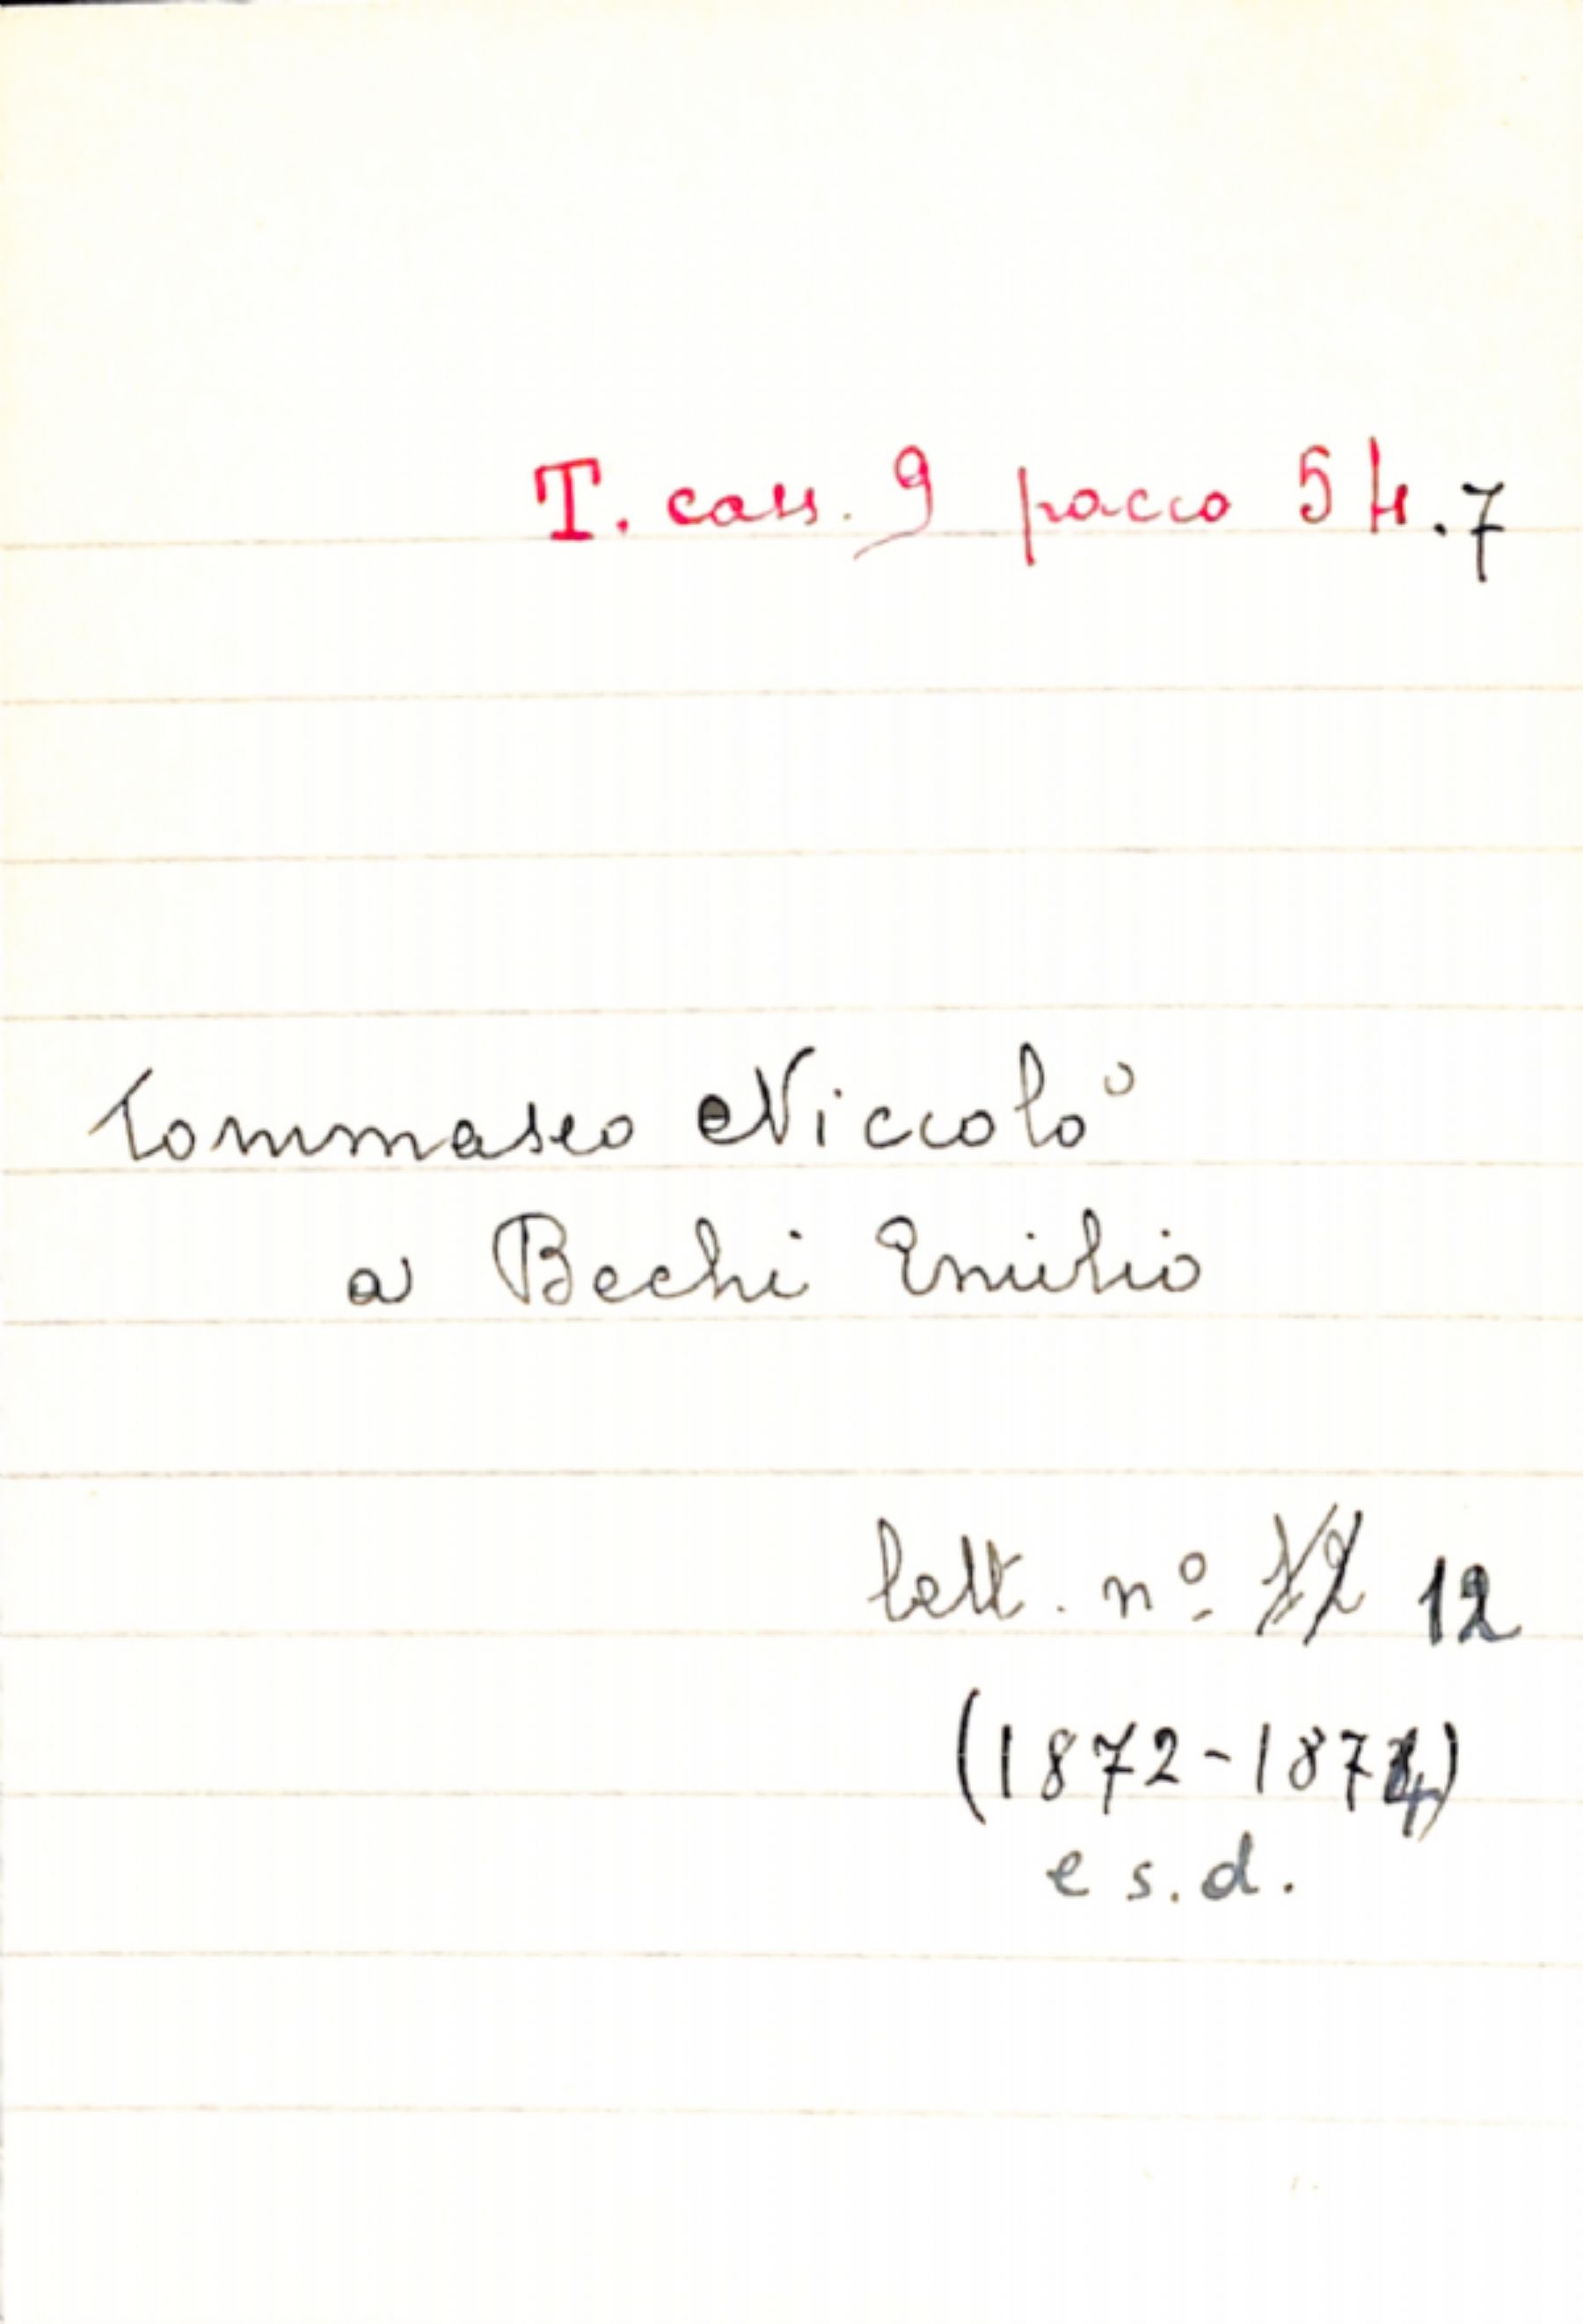 T. cass. 9 pacco 54.7
Tommaseo Niccolò
a Bechi Emilio
lett. nº 12 12
(1872-1874)
e s.d.